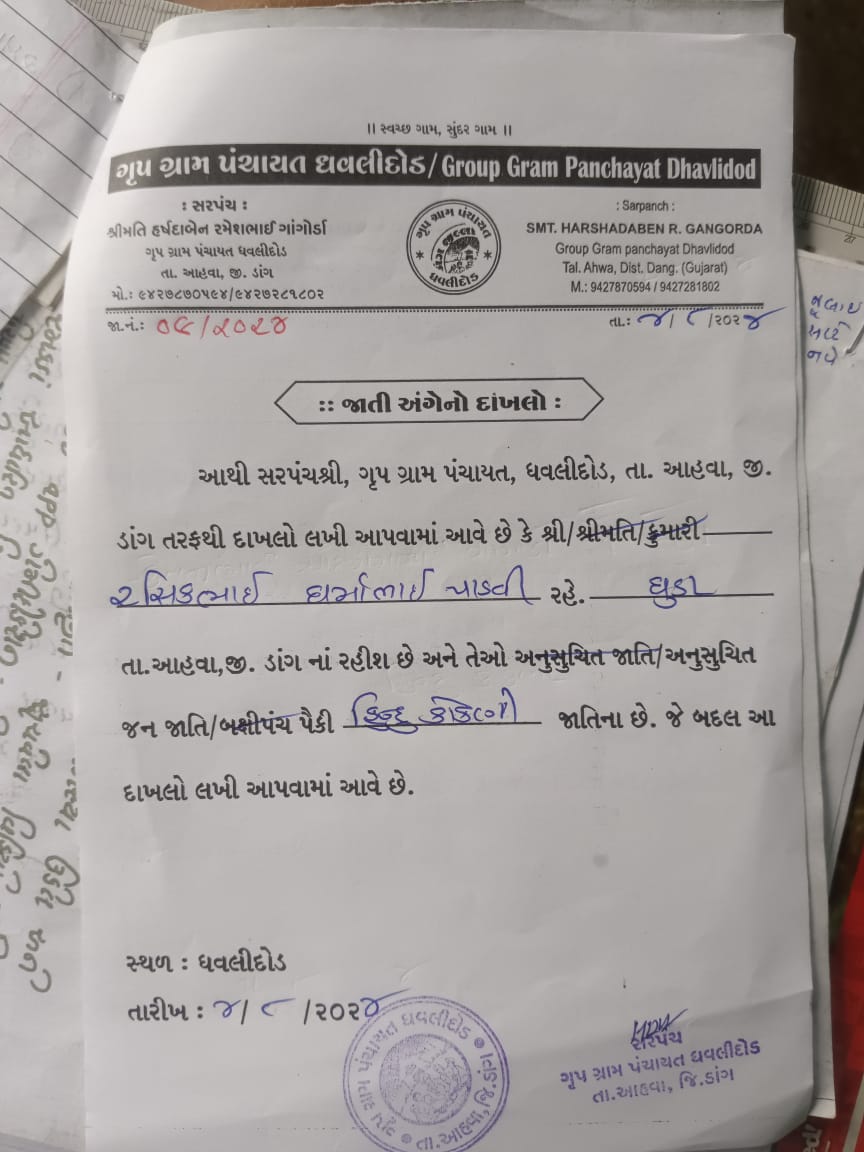 || સ્વચ્છ ગામ, સુંદર ગામ ||
ગૃપ ગ્રામ પંચાયત ધવલીદોડ / Group Gram Panchayat Dhavlidod
: સરપંચ :
શ્રીમતિ હર્ષદાબેન રમેશભાઈ ગાંગોર્ડા
ગૃપ ગ્રામ પંચાયત ધવલીદોડ
તા. આહવા, જી. ડાંગ
મો.: ૯૪૨૭૮૭૦૫૯૪/૯૪૨૭૨૮૧૮૦૨
: Sarpanch :
SMT. HARSHADABEN R. GANGORDA
Group Gram panchayat Dhavlidod
Tal. Ahwa, Dist. Dang. (Gujarat)
M.: 9427870594 / 9427281802
જા.નં.: ૦૯/૨૦૨૪
તા.: ૪/૮/૨૦૨૪
:: જાતી અંગેનો દાંખલો :
આથી સરપંચશ્રી, ગૃપ ગ્રામ પંચાયત, ધવલીદોડ, તા. આહવા, જી.
ડાંગ તરફથી દાખલો લખી આપવામાં આવે છે કે શ્રી/શ્રીમતિ/કુમારી
રસિકભાઈ ધર્માભાઈ પાડવી રહે. ધુડા
તા.આહવા,જી. ડાંગ નાં રહીશ છે અને તેઓ અનુસુચિત જાતિ/અનુસુચિત
જન જાતિ/બક્ષીપંચ પૈકી હિન્દુ કોકણી જાતિના છે. જે બદલ આ
દાખલો લખી આપવામાં આવે છે.
સ્થળ : ધવલીદોડ
તારીખ : ૪/૮/૨૦૨૪
સરપંચ
ગૃપ ગ્રામ પંચાયત ધવલીદોડ
તા.આહવા, જિ.ડાંગ